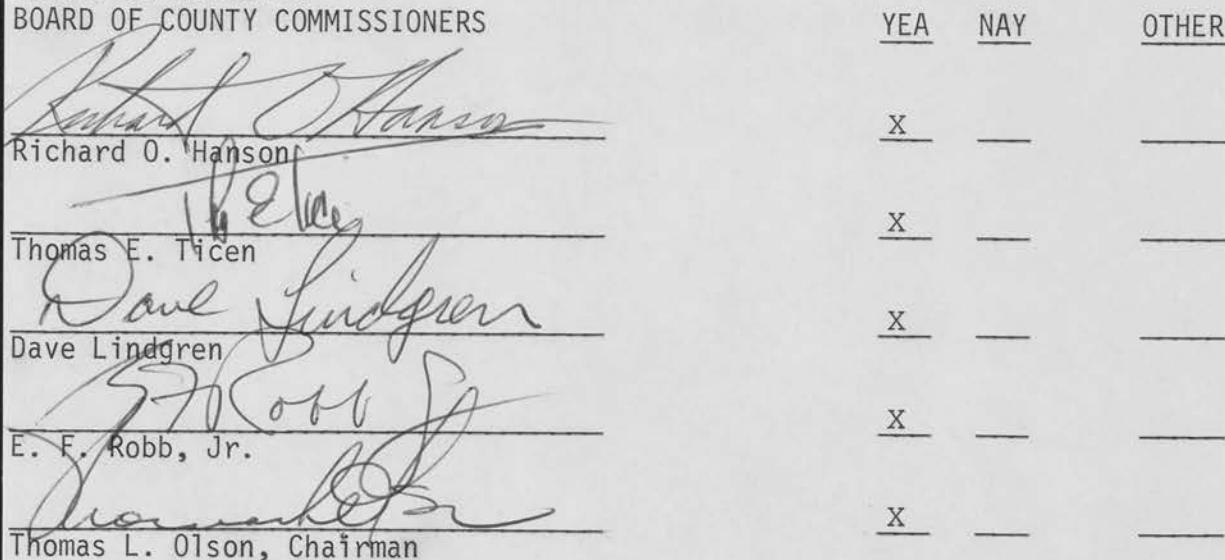 BOARD OF COUNTY COMMISSIONERS YEA NAY OTHER
Richard O Hanson X
Richard O. Hanson
X
Thomas E. Ticen
Dave Lindgren X
Dave Lindgren
E F Robb Jr X
E. F. Robb, Jr.
X
Thomas L. Olson, Chairman